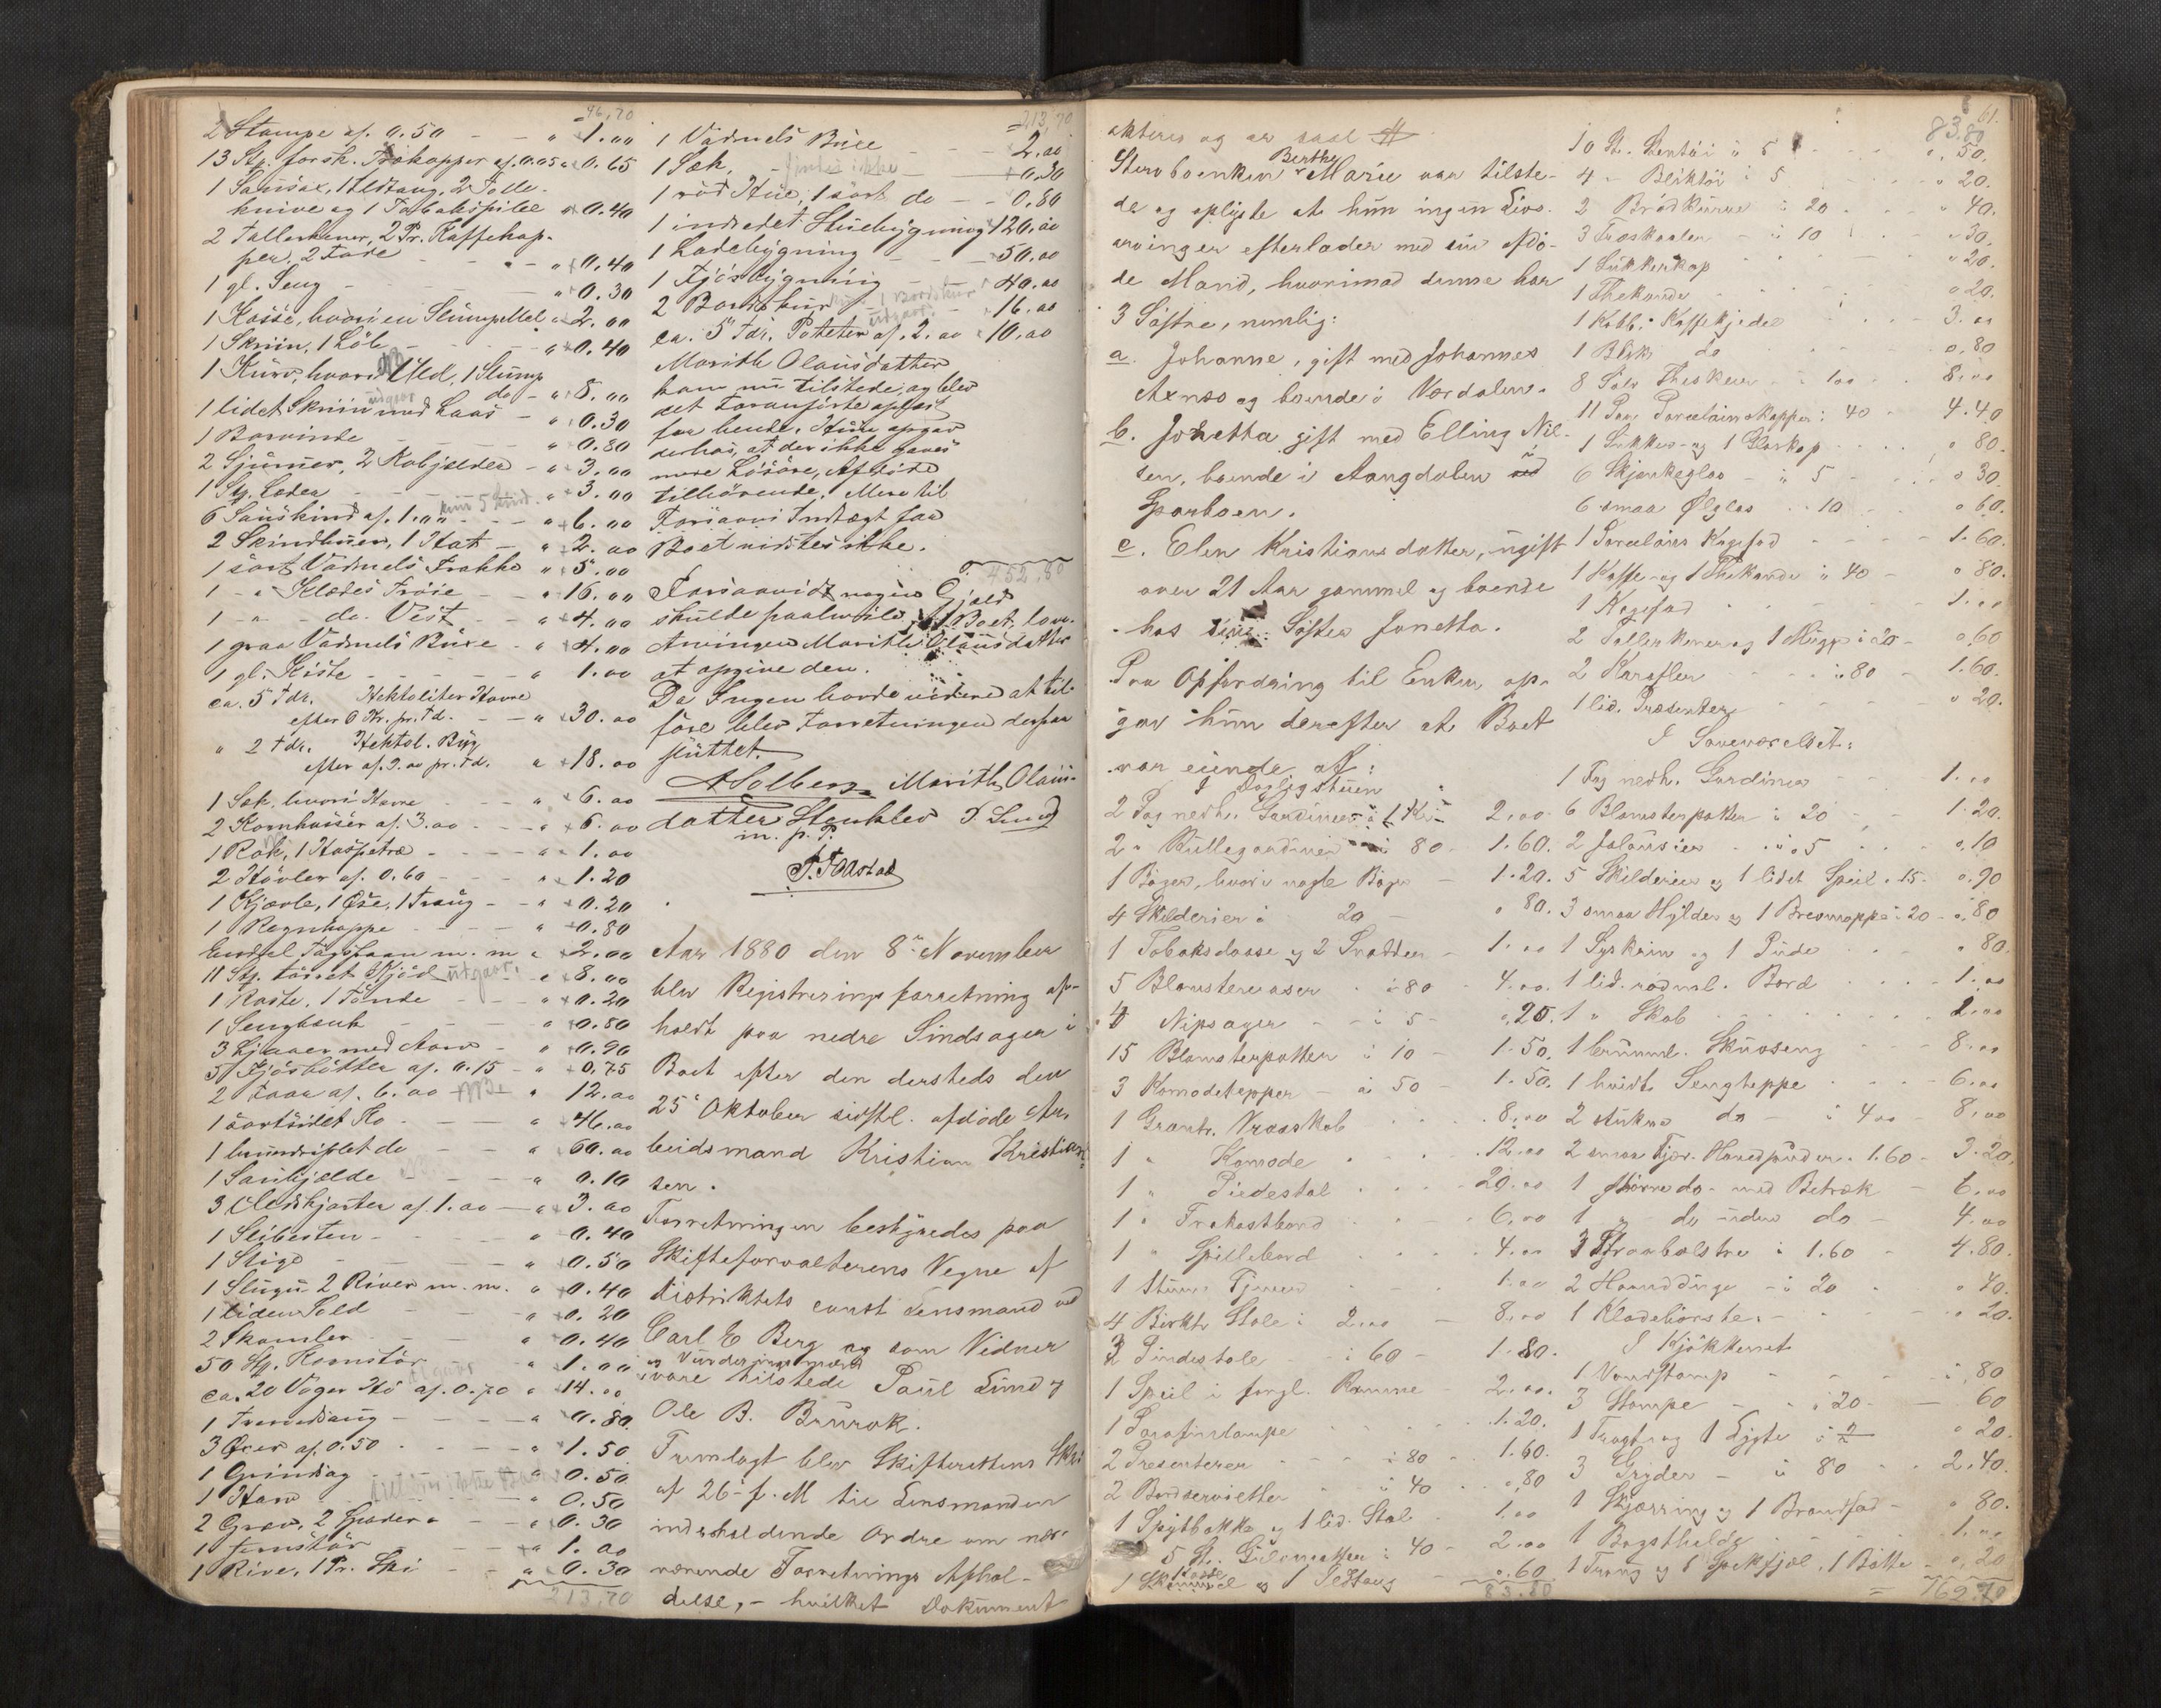 46,70
2 Stampe af. 0.50 - - " 1.00
13 Stp. forsk. Trækopper af 0.05 " 0.65
1 Sausax, 1 Ildtang, 2 Tolle-
knive og 1 Tobakspibe " 0.40
2 Tallerkener, 2 Pr. Kaffekop-
per, 2 Fade - - " 0.40
1 gl. Seng - " 0.30
1 Kasse, hvori en Slump Mel " 2.00
1 Skrin, 1 Löb - " 0.40
1 Kurv, hvori Uld, 1 Slump
do - " 8.00
1 lidet Skrin med Laas - " 0.30
utgaar
1 Garnvinde - " 0.80
2 Sjumer, 2 Kobjælder - " 3.00
1 Stp. Læder - " 3.00
kun 5 Skind.
6 Sauskind af. 1.00 - " 6.00
2 Skindhuer, 1 Hat - " 2.00
1 sort Vadmels Frakke " 5.00
1 - " Klædes Tröie - " 16.00
1 - " - do. Vest - " 4.00
1 graa Vadmels Buxe - " 4.00
1 gl. Kiste - " 1.00
ca. 5 Tdr. Hektoliter Havre
efter 6 Kr. pr. Td. - " 30.00
" 2 Tdr. Hektol. Byg
efter af. 9.00 pr. Td. " 18.00
1 Sæk, hvori Havre - " 6.00
2 Kornhuser af. 3.00 - " 6.00
1 Rok, 1 Haspetræ - " 1.00
2 Hövler af. 0.60 - " 1.20
1 Kjævle, 1 Øse, 1 Traug - " 0.20
1 Regnkappe - " 0.80
Endel Tagspaan m. m. " 2.00
11 Stp. törret Kjöd utgaar. " 8.00
1 Kaste, 1 Tönde - " 0.20
1 Sengbænk - " 0.80
3 Ljaaer med Aarv - " 0.90
5 Fjösbötter af. 0.15 - " 0.75
2 Faar af. 6.00 " 12.00
1 sortsidet Ko - " 46.00
1 brundriplet do - " 60.00
1 Saubjælde - " 0.10
3 Medkjælker af 1.00 - " 3.00
1 Slibesten - " 0.40
1 Stige - " 0.50
1 Slugu 2 River m. m. " 0.40
1 liden Sold - " 0.20
2 Skamler - " 0.40
50 Stp. Kornstör - " 1.00
utgaar
ca. 20 Voger Hö af. 0.70 " 14.00
1 Tvendsaug - " 0.80
3 Öxer af. 0.50 - " 1.50
1 Grindsag - " 0.50
tilhörer ikke Boet
1 Harv - " 0.50
2 Grev, 2 Spader " 0.30
1 Jernstör - " 1.00
1 Rive, 1 Pr. Ski - " 0.30
213,70
213,70
1 Vadmels Buxe - 2.00
1 Sæk, - findes ikke - 0.30
1 röd Hue, 1 sort do - - 0.80
1 indredet Stuebygning " 120.00
1 Ladebygning - - 50.00
1 Fjösbygning - " 40.00
2 Bordskur 1 Bordskur utgaar. " 16.00
ca. 5 Tdr. Poteter af. 2.00 " 10.00
Marith Olausdatter
kom nu tilstede, og blev
det foranförte oplæst
for hende. Hun opgav
derhos, at der ikke gaves
mere Lösöre, Afdöde
tilhörende. Mere til
Foriaaret Indtægt for
Boet vidstes ikke.
452,80
Forsaavidt nogen Gjæld
skulde paahvile Boet, lov-
Arvingen Marith Olausdatter
at opgive den.
Da Ingen havde videre at til-
före blev Forretningen derpaa
sluttet.
A Solberg. Marith Olaus-
datter Stenklev P. Lund
m. p. P.
P. Faastad
Aar 1880 den 8de November
blev Registreringsforretning af-
holdt paa nedre Lindsager i
Boet efter den dersteds den
25' Oktober sidstl. afdöde Ar-
beidsmand Kristian Kristian-
sen.
Forretningen bestyredes paa
Skifteforvalterens Vegne af
Distriktets const. Lensmand ved
Carl E Berg og som Vidner
og Vurderingsmænd
vare tilstede Paul Lund og
Ole B. Brurok.
Fremlagt blev Skifterettens Skri
af 26 f. M til Lensmanden
indeholdende Ordre om nær-
værende Forretnings Afhol-
delse, - hvilket Dokument
akteres og er saal #
Berthe
Stervboenken Marie var tilste-
de og oplyste at hun ingen Livs-
arvinger efterlader med sin afdö-
de Mand, hvorimod denne har
3 Söstre, nemlig:
a. Johanne, gift med Johannes
Axnæs og boende i Værdalen.
b. Johetta gift med Elling Nil-
sen, boende i Aangdalen i
Sparboen.
c. Elen Kristiansdatter, ugift
over 21 Aar gammel og boende
hos sin Söster Jonetta.
Paa Opfordring til Enken op-
gav hun derefter at Boet
var eiende af:
I Dagligstuen
2 Fag nedh. Gardiner à 1 Kr 2,00
2 " Rullegardiner à 80 - 1.60.
1 Böger, hvori nogle Böger - 1.20.
4 Skilderier à 20 - " 80.
1 Tobaksdaase og 2 Snadder - 1.00
5 Blomstervaser à 80 - 4.00.
4 Nipsager - à 5 - ".20.
15 Blomsterpotter à 10 - 1.50.
3 Komodetepper - à 50 - 1.50.
1 Grantr. Vraaskab 8,00
1 " Komode 12.00
1 " Piedestal 20.00
1 " Frokostbord 6,00
1 " Spillebord 4.00
1 Stumm Tjener 1.00
4 Birktr Stole à 2.00 - 8,00
3 Pindestole - à 60 - 1.80.
1 Speil i forgl. Ramme - 2.00.
1 Parafinlampe 1.20.
2 Presenterer à 80 - 1.60.
2 Bordservietter à 40 ",80
1 Spytbakke og 1 lid. Stol 1.00
5 St. Gulvmatter à 40 - 2.00
1 Skammel og 1 Ildtang ".60
83.80
61.
83.80
10 St. Stentöi à 5 ". 50.
4 - Bliktöi à 5 " 20.
2 Brödkurve à 20 " 40.
3 Træskaaler - à 10 " 30.
1 Sukkerkop " 20.
1 Thekande " 20.
1 Kobb. Kaffekjedel 3.00
1 Blik do 0,80
8 Sölv Theskeer - à 100 8,00
11 Par Porcelainskopper à 40 - 4.40
1 Sukker- og 1 Glaskop " 80.
6 Skjænkeglas - à 5 - " 30.
6 smaa Ølglas 10 " 60.
1 Porcelains Kagefad 1.60.
1 Kaffe- og 1 Thekande à 40 - " 80.
1 Kagefad 1.00
2 Tallerkener og 1 Mugge à 20 - ".60
2 Karafler à 80 - 1.60.
1 lid. Præsenter " 20.
I Soveværelset:
1 Fag nedh. Gardiner 1.00
6 Blomsterpotter à 20 - 1.20.
2 Jalousier à 5 ".10
5 Skilderier og 1 lidet Speil à 15. ".90
3 smaa Hylder og 1 Brevmappe à 20 - ".80
1 Syskrin og 1 Pude " 80.
1 lid. rödml. Bord 1.00
1 " Skab 2.00
1 brunml. Skuvseng 8.00
1 hvidt Sengteppe 6.00
2 stukne do - à 400 - 8,00
2 smaa Fjær. Hovedpuder à 1.60 - 3.20.
1 större do - med Betræk - 6.00
1 " do uden do - 4.00
3 Straabolstre à 1.60 - 4.80.
2 Haanddüge - à 20 " 40.
1 Klædebörste " 20.
I Kjökkenet
1 Vandstamp ".80
3 Stampe - à 20 - 60
1 Tragt og 1 Lygte " 20.
3 Gryder - à 80 - 2.40.
1 Kjærring og 1 Brændfad - " 80.
1 Bagsthelde 1.00
1 Traug og 1 Spekfjæl, 1 Bötte - ". 20
= 162.70